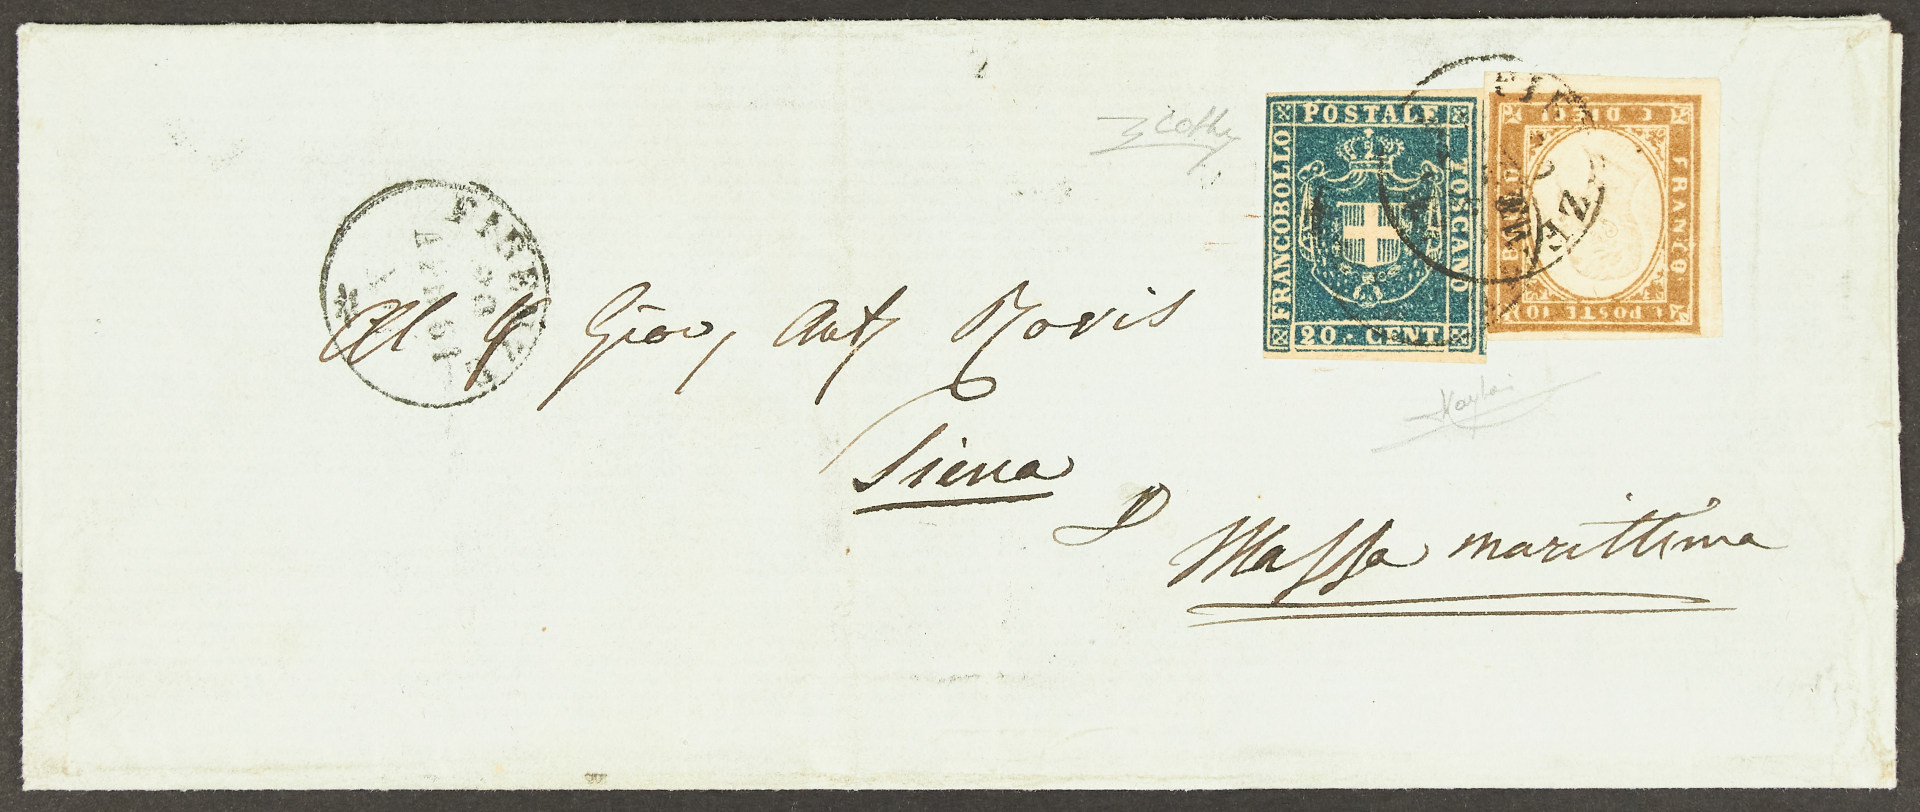 POSTALE
FRANCOBOLLO
TOSCANO
20 - CENT
FRANCO
C. DIECI
BOLLO
POSTE 10
FIRENZE
Al S Giov, Ant Rovis
Siena
Massa marittima